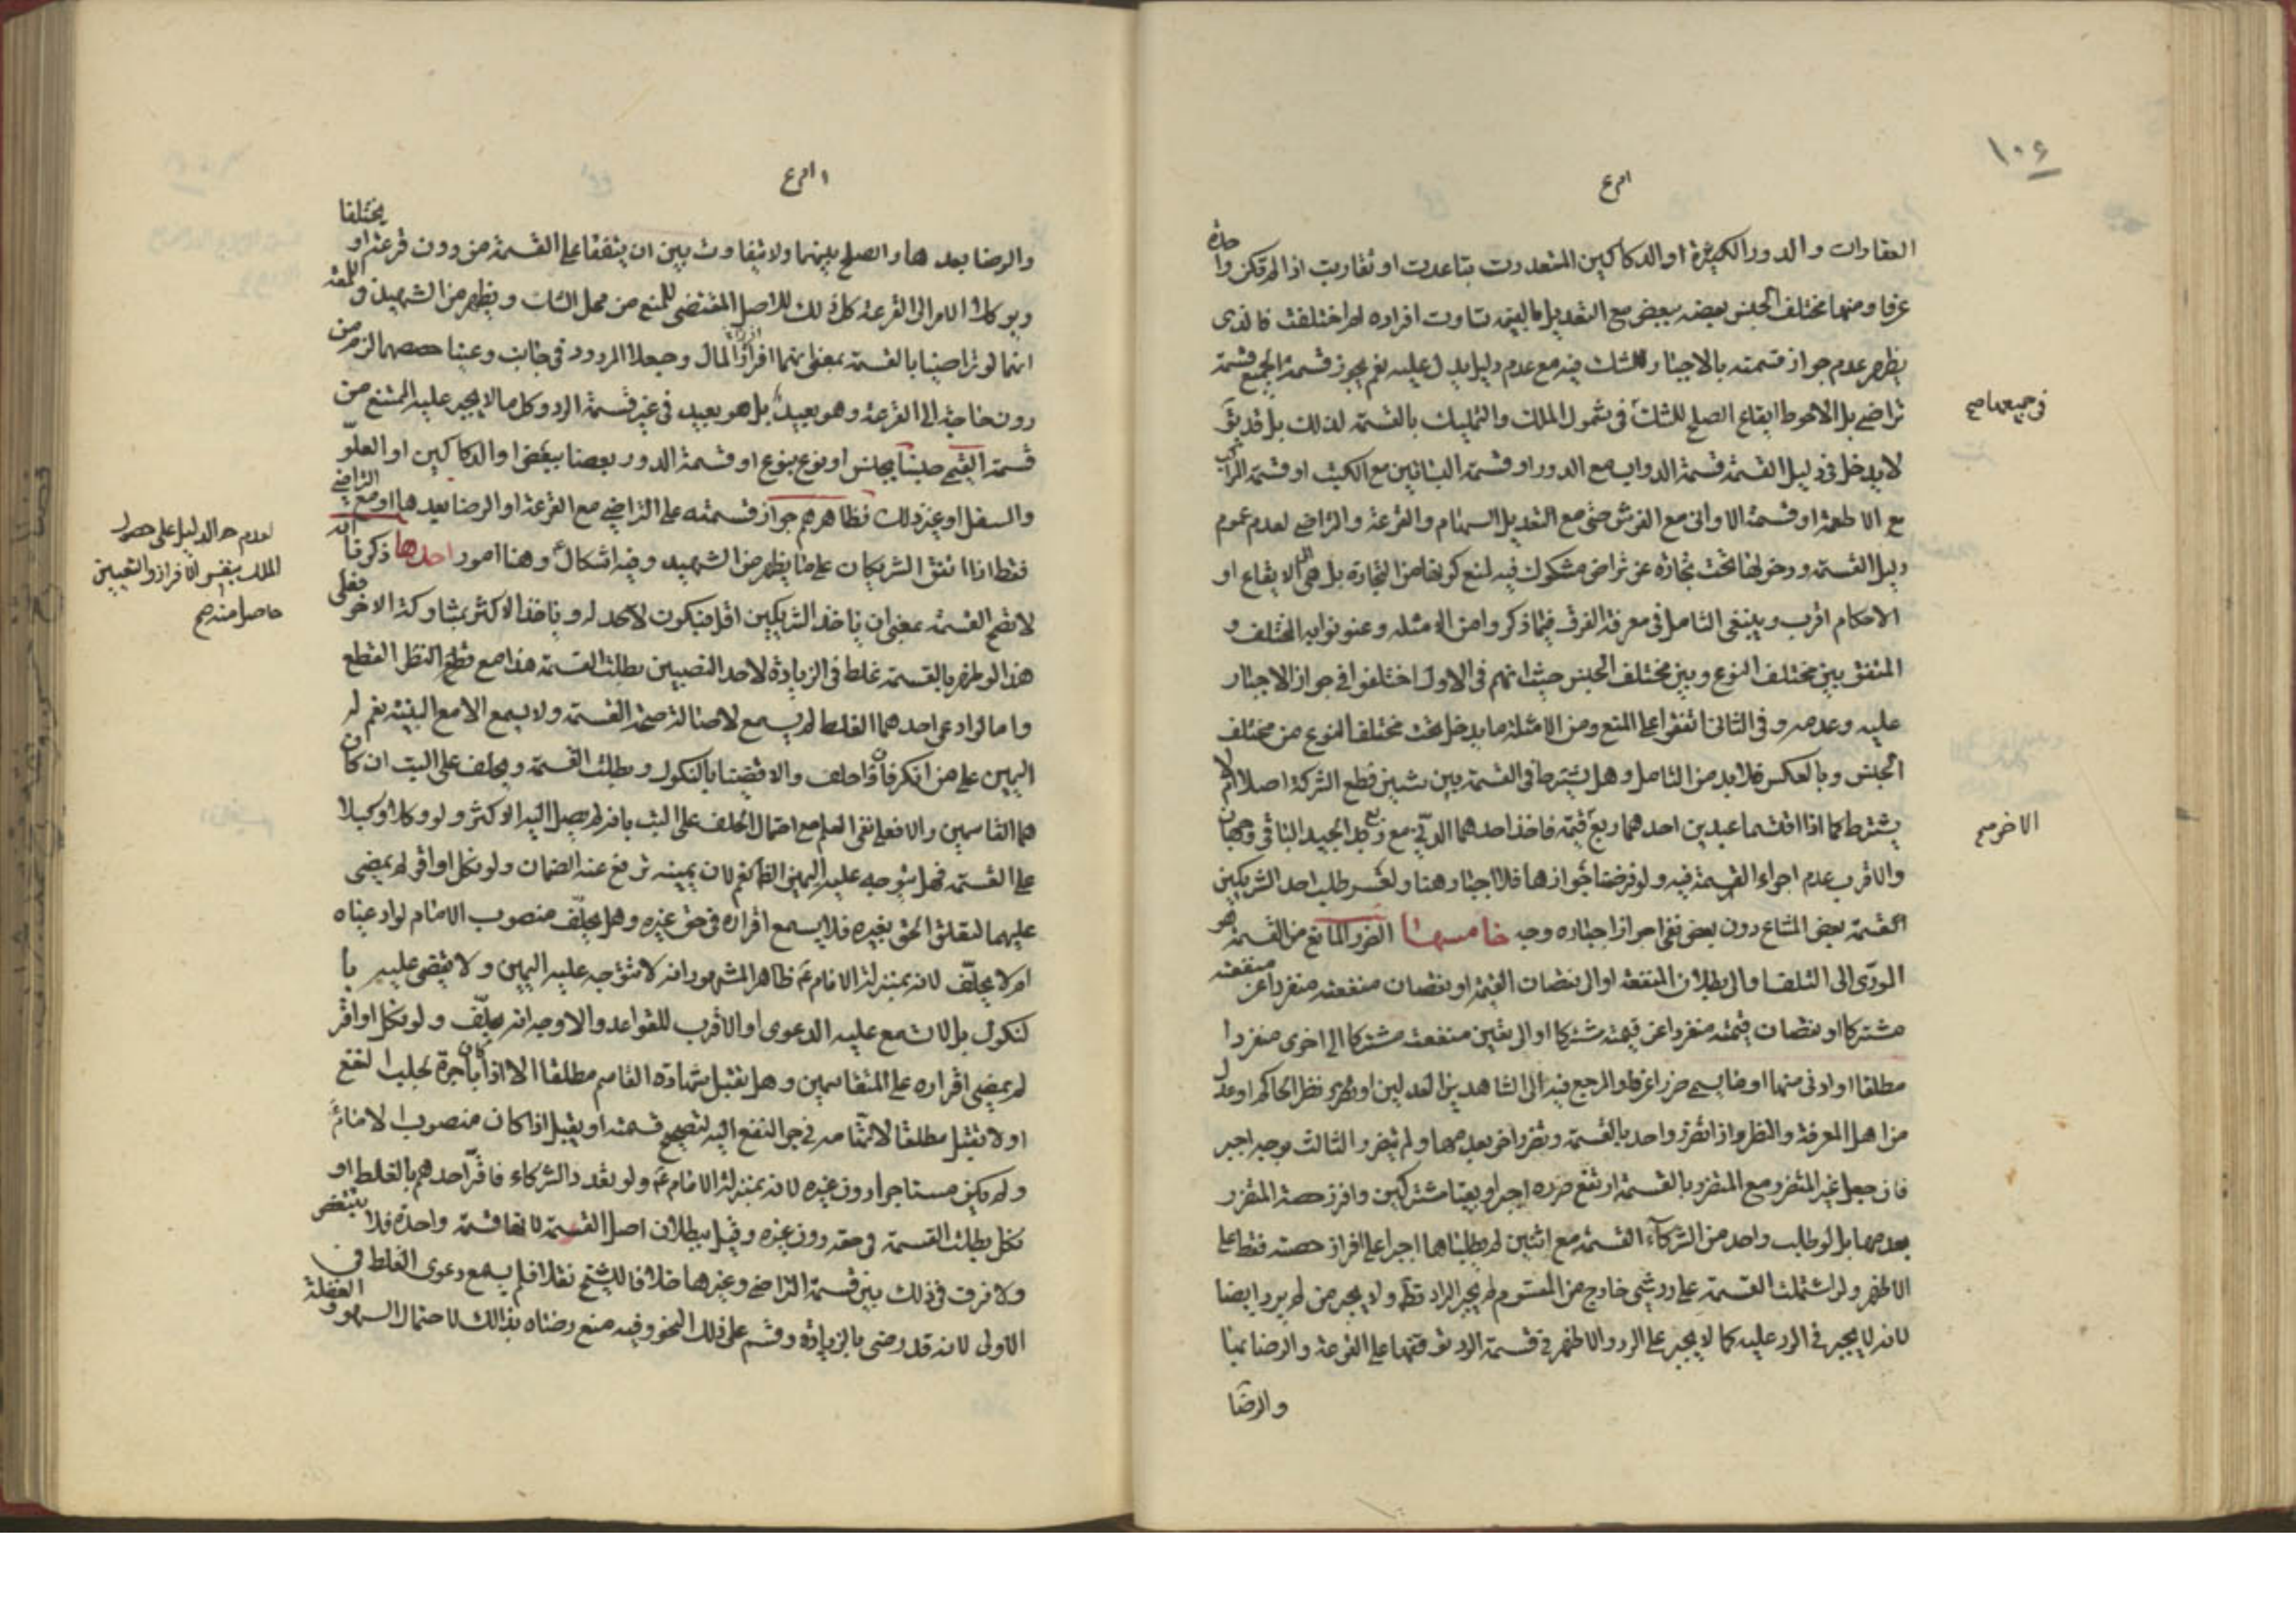 ١٠٤
العقارات والدور الكثيرة او الدكاكين المتعددت تباعدت او تقاربت اذا لم تكن واحدة
عرفا ومنها مختلف الجنس بعضه ببعض مع التعديل بالقيمة تساوت افراده ام اختلفت فالذى
يظهر عدم جواز قسمته بالاجبار وللشك فيه مع عدم دليل يدل عليه نعم يجوز قسمة الجميع قسمة
تراضى بل الاحوط ايقاع الصلح للشك فى شمول الملك والتمليك بالقسمة لذلك بل قد يق
فى جميعها صح
لا يدخل فى دليل القسمة قسمة الدواب مع الدور او قسمة البساتين مع الكتب او قسمة
مع الاطعمة او قسمة الاوانى مع الفرش حتى مع التعديل السهام والقرعة والتراضى لعدم عموم
دليل القسمة ودخولها تحت تجارة عن تراض مشكوك فيه لمنع كونها من التجارة بل هى الى الايقاع او
الاحكام اقرب وينبغى التامل فى معرفة الفرق فيما ذكروا من الامثلة وعنونوا به المختلف و
المتفق بين مختلف النوع وبين مختلف الجنس حيث انهم فى الاول اختلفوا فى جواز الاجبار
عليه وعدمه وفى الثانى اتفقوا على المنع ومن الامثلة ما يدخل تحت مختلف النوع من مختلف
الجنس وبالعكس فلا بد من التامل وهل يشترط فى القسمة بين شيئين قطع الشركة اصلا ام لا
يشترط كما اذا اقتسما عبدين احدهما ربع قيمة فاخذ احدهما الدنى مع ربع الجيد الباقى وجهان
الاخر صح
والاقرب عدم اجراء القسمة فيه ولو فرضنا جوازها فلا اجبار هنا ولو طلب احد الشريكين
القسمة بعض المشاع دون بعض نفى جواز اجباره وجه خامسها الضرر المانع من القسمة هو
المودى الى التلف او الى بطلان المنفعة او الى نقصان القيمة او نقصان منفعته منفردا عن منفعته
مشتركا او نقصان قيمته منفردا عن قيمته مشتركا او الى تغيين منفعته مشتركا الى اخرى منفردا
مطلقا او ادنى منهما او ما يسمى ضررا عرفا والمرجع فيه الى الشاهدين العدلين او نظر الحاكم او عدل
من اهل المعرفة والنظر واذا تضرر واحد بالقسمة وتضرر اخر بعدمها ولم يتضرر الثالث بوجه اجبر
فان جعل غير المتضرر مع المتضرر بالقسمة ارتفع ضرره اجبر او بقيا مشتركين وافرز حصة المتضرر
بعدمها بل لو طلب واحد من الشركاء القسمة مع اثنين لم يطلباها اجبرا على افراز حصته فقط على
الاظهر ولو اشتملت القسمة على رد شئ خارج من المقسوم لم يجبر الراد قطعا ولا يجبر من لم يرد ايضا
لانه لا يجبر فى الرد عليه كما لا يجبر على الرد والاظهر فى قسمة الرد توقفها على القرعة والرضا بها
والرضا
والرضا بعدها والصلح بينهما ولا يتفاوت بين ان يتفقا على القسمة من دون قرعة او يختلفا
ويوكلا الامر الى القرعة كل ذلك للاصل المقتضى للمنع من محل الشك ويظهر من الشهيد فى اللمعة
انهما لو تراضيا بالقسمة بمعنى انهما افرزا المال وجعلا المردود فى جانب وعينا حصصهما لزم من
دون حاجة الى القرعة وهو بعيد بل هو بعيد فى غير قسمة الرد وكل ما لا يجبر عليه الممتنع من
قسمة القيمى جنسا بجنس او نوع بنوع او قسمة الدور بعضا ببعض او الدكاكين او العلو
والسفل او غير ذلك فظاهرهم جواز قسمته على التراضى مع القرعة او الرضا بعدها او مع التراضى
فقط اذا اتفق الشريكان على ما يظهر من الشهيد وفيه اشكال وهنا امور احدها ذكرنا انه
لعدم الدليل على حصول
الملك بنفس الافراز والتعيين
حاصل منه صح
لا تصح القسمة بمعنى ان ياخذ الشريكين اقل فيكون لاحد له وياخذ الاكثر بمشاركة الاخر فعلى
هذا لو ظهر بالقسمة غلط فى الزيادة لاحد النصيبين بطلت القسمة هذا مع قطع النظر القطع
واما لو ادعى احدهما الغلط لم يسمع لاصالة صحة القسمة ولا يسمع الا مع البينة نعم له
اليمين على من انكر فان احلف والا قضينا بالنكول وبطلت القسمة ويحلف على البت ان كان
هما القاسمين والا فعلى نفى العلم مع احتمال الحلف على البت بانه لم يصل اليه الاكثر ولو وكلا وكيلا
على القسمة فهل يتوجه عليه اليمين الظاهر نعم لان يمينه ترفع عنه الضمان ولو نكل او اقر لم يمضى
عليهما لتعلق الحق بغيره فلا يسمع اقراره فى حق غيره وهل يحلف منصوب الامام لو ادعياه
ام لا يحلف لانه بمنزلة الامام ع ظاهر المشهور انه لا تتوجه عليه اليمين ولا يقضى عليه با
لنكول بل لا تسمع عليه الدعوى او الاقرب للقواعد والاوجه انه يحلف ولو نكل او اقر
لم يمضى اقراره على المتقاسمين وهل تقبل شهادة القاسم مطلقا الا اذا كان باجرة لجلب النفع
او لا تقبل مطلقا لاتهامه فى جر النفع اليه لتصحيح قسمته او يقبل اذا كان منصوب الامام
ولم يكن مستاجرا دون غيره لانه بمنزلة الامام ع ولو تعدد الشركاء فاقر احدهم بالغلط او
نكل بطلت القسمة فى حقه دون غيره وقيل ببطلان اصل القسمة لانها قسمة واحدة فلا يتبعض
ولا فرق فى ذلك بين قسمة التراضى وغيرها خلافا للشيخ نقلا فلم يسمع دعوى الغلط فى
الاولى لانه قد رضى بالزيادة وقسم على ذلك النحو وفيه منع رضاه بذالك لاحتمال السهو و الغفلة